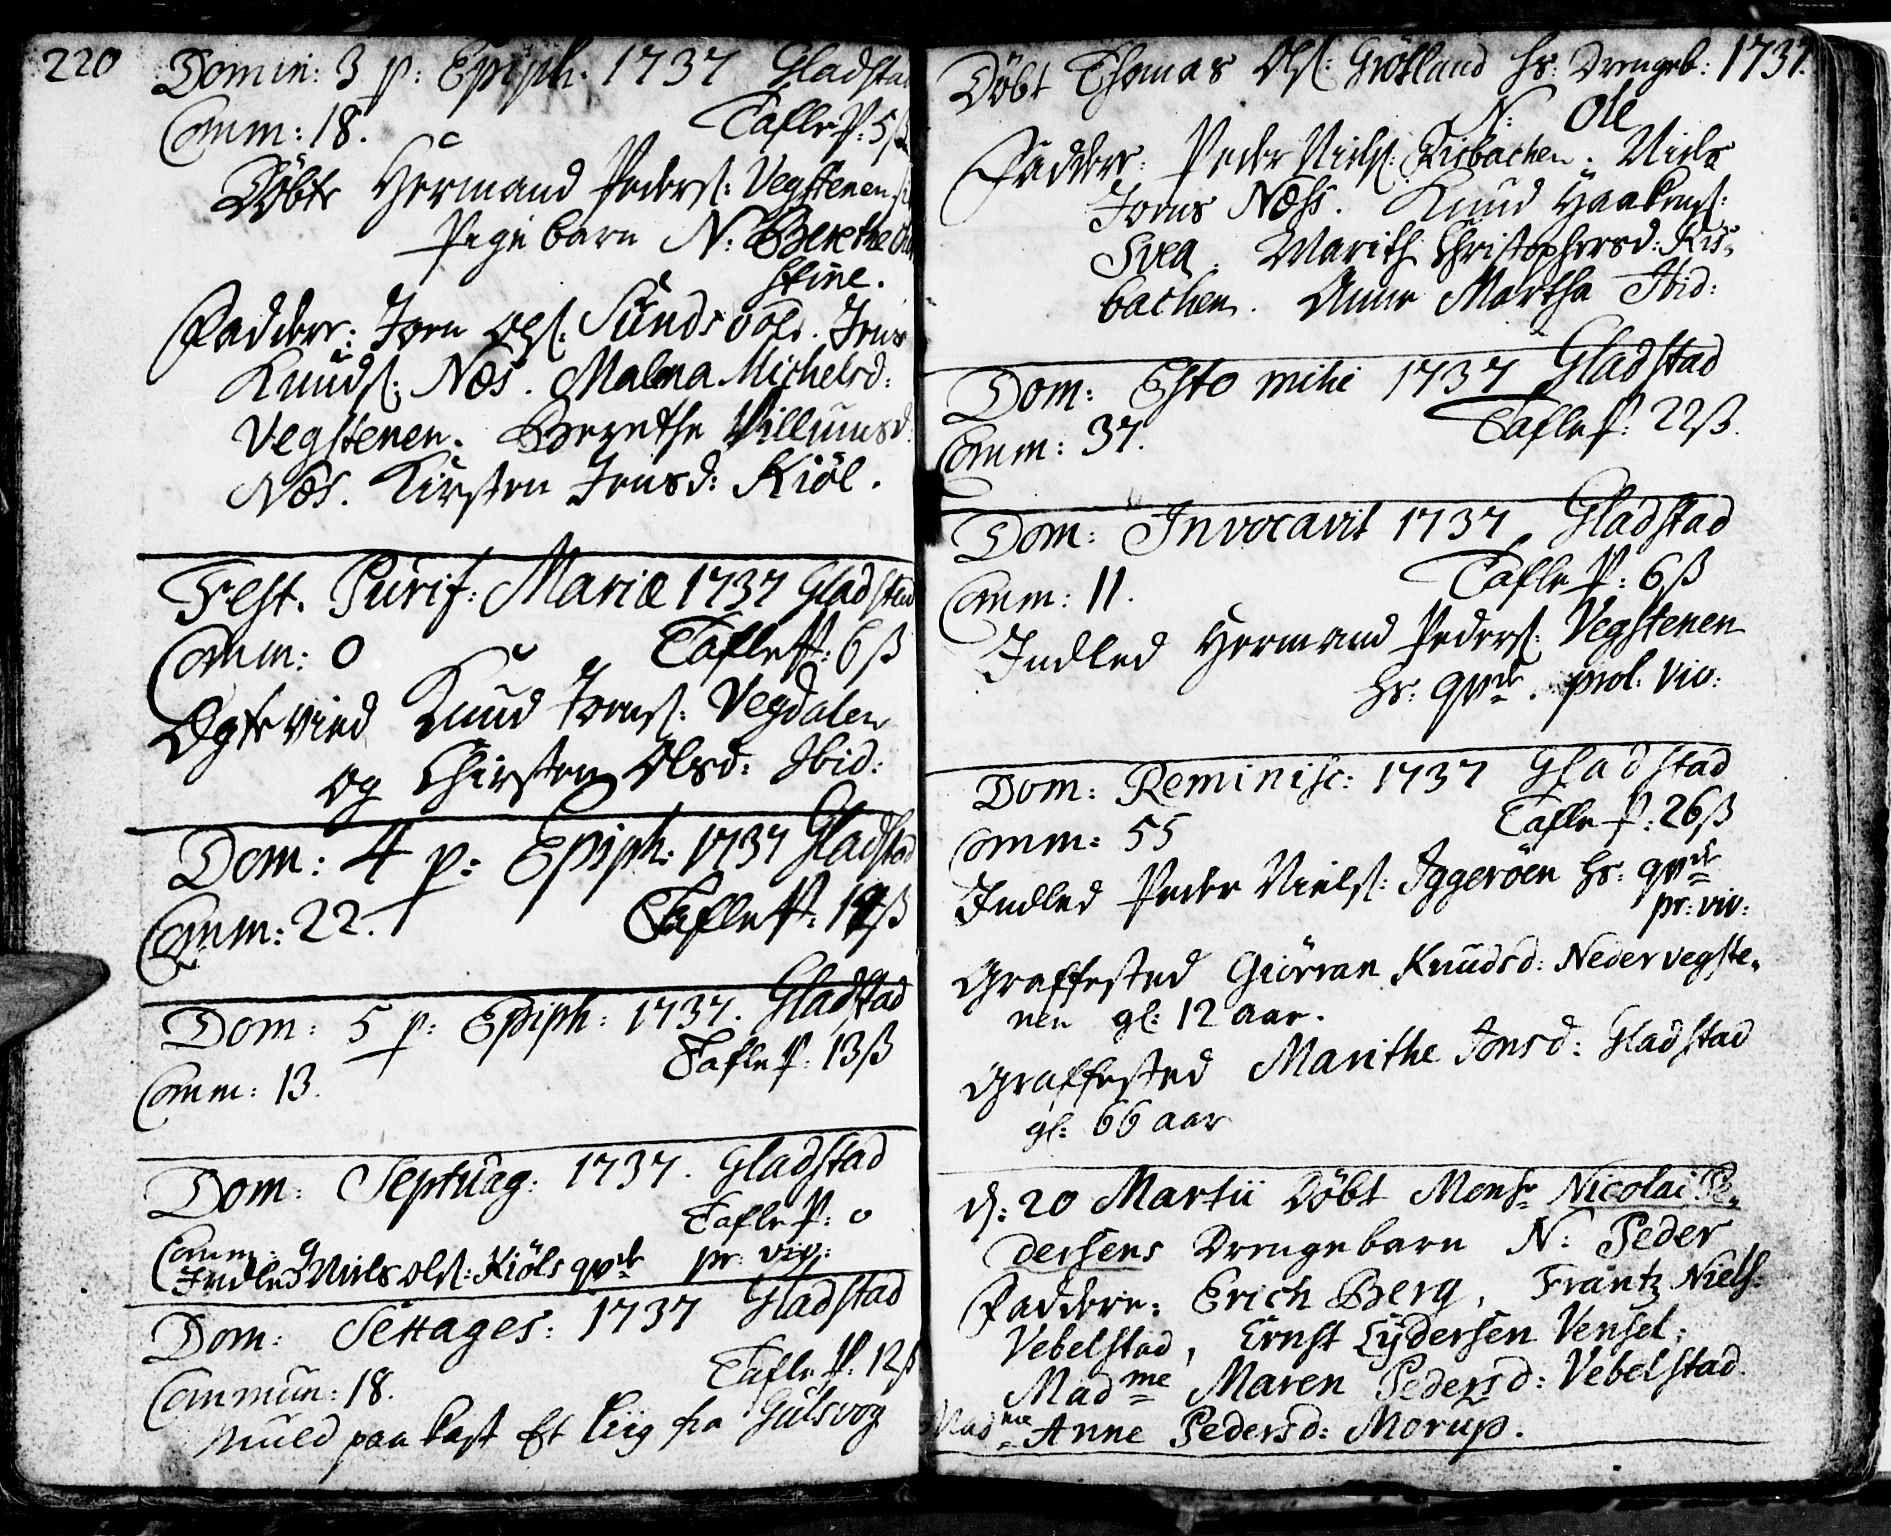 220
Domin: 3 p: Epiph: 1737 Gladstad
Comm: 18. Tafle P: 5 ß
Döbt Hermand Peders: Vegstenen
Pige barn N: Berethe
stine.
Faddere: Joen Ols: Sundsvold. Jens
Knuds: Næs. Malena Michelsd:
Vegstenen. Berethe Villumsd:
Næs. Kirsten Jensd: Kiöl.
Fest. Purif: Mariæ 1737 Gladstad
Comm: 0 Tafle P: 6 ß
Ægte vied Knud Joens: Vegdalen
og Chirsten Olsd: Ibid:
Dom: 4 p: Epiph: 1737 Gladstad
Comm: 22. Tafle P: ß
Dom: 5 p: Epiph: 1737. Gladstad
Comm: 13. Tafle P: 13 ß
Dom: Septuag: 1737. Gladstad
Tafle P: 0
Comm: 9
Indled Niels Ols: Kiöls qvde pr: viv:
Dom: Sexages: 1737 Gladstad
Tafle P: 12 ß
Commun: 18.
Muld paa kast Et Liig fra Gulsvog
1737.
Döbt Thomas Ols: Grötland hs: Drengeb:
N: Ole
Faddere: Peder Niels: Risbachen. Niels
Joens Næss. Knud Haakens:
Svea. Marith Christophersd: Ris-
bachen. Anne Martha Ibid:
Dom: Esto mihi 1737 Gladstad
Comm: 37. Tafle P: 22 ß.
Dom: Invocavit 1737 Gladstad
Comm: 11. Tafle P: 6 ß
Indled Hermand Peders: Vegstenen
hs: qvde. prol: viv:
Dom: Reminisc: 1737 Gladstad
Comm: 55 Tafle P: 26 ß
Indled Peder Niels: Iggeröen hs: qvde
pr: viv:
Graffested Giörran Knudsd: Neder vegste-
nen gl: 12 aar.
Graffested Marithe Jonsd: Gladstad
gl: 66 aar
d: 20 Martii Döbt Monsr Nicolai Pe-
dersens Drenge barn N: Peder
Faddere: Erich Berg, Frantz Niels:
Vebelstad, Ernst Lydersen Vensel;
Madme Maren Pedersd: Vebelstad.
Madme Anne Pedersd: Morup.